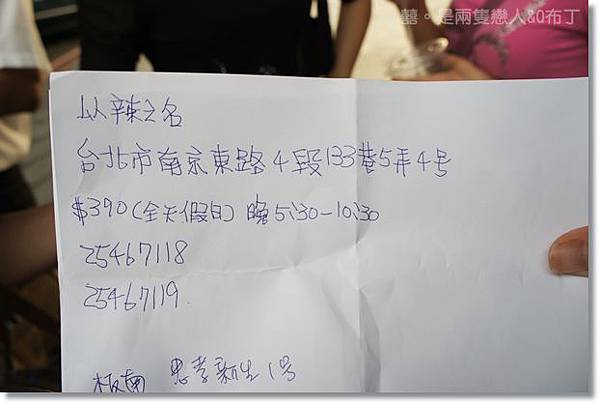 囍。是兩隻戀人&Q布丁
以辣之名
台北市南京東路4段133巷5弄4号
$390(全天假日) 晚5:30-10:30
25467118
25467119.
板南 忠孝新生1号